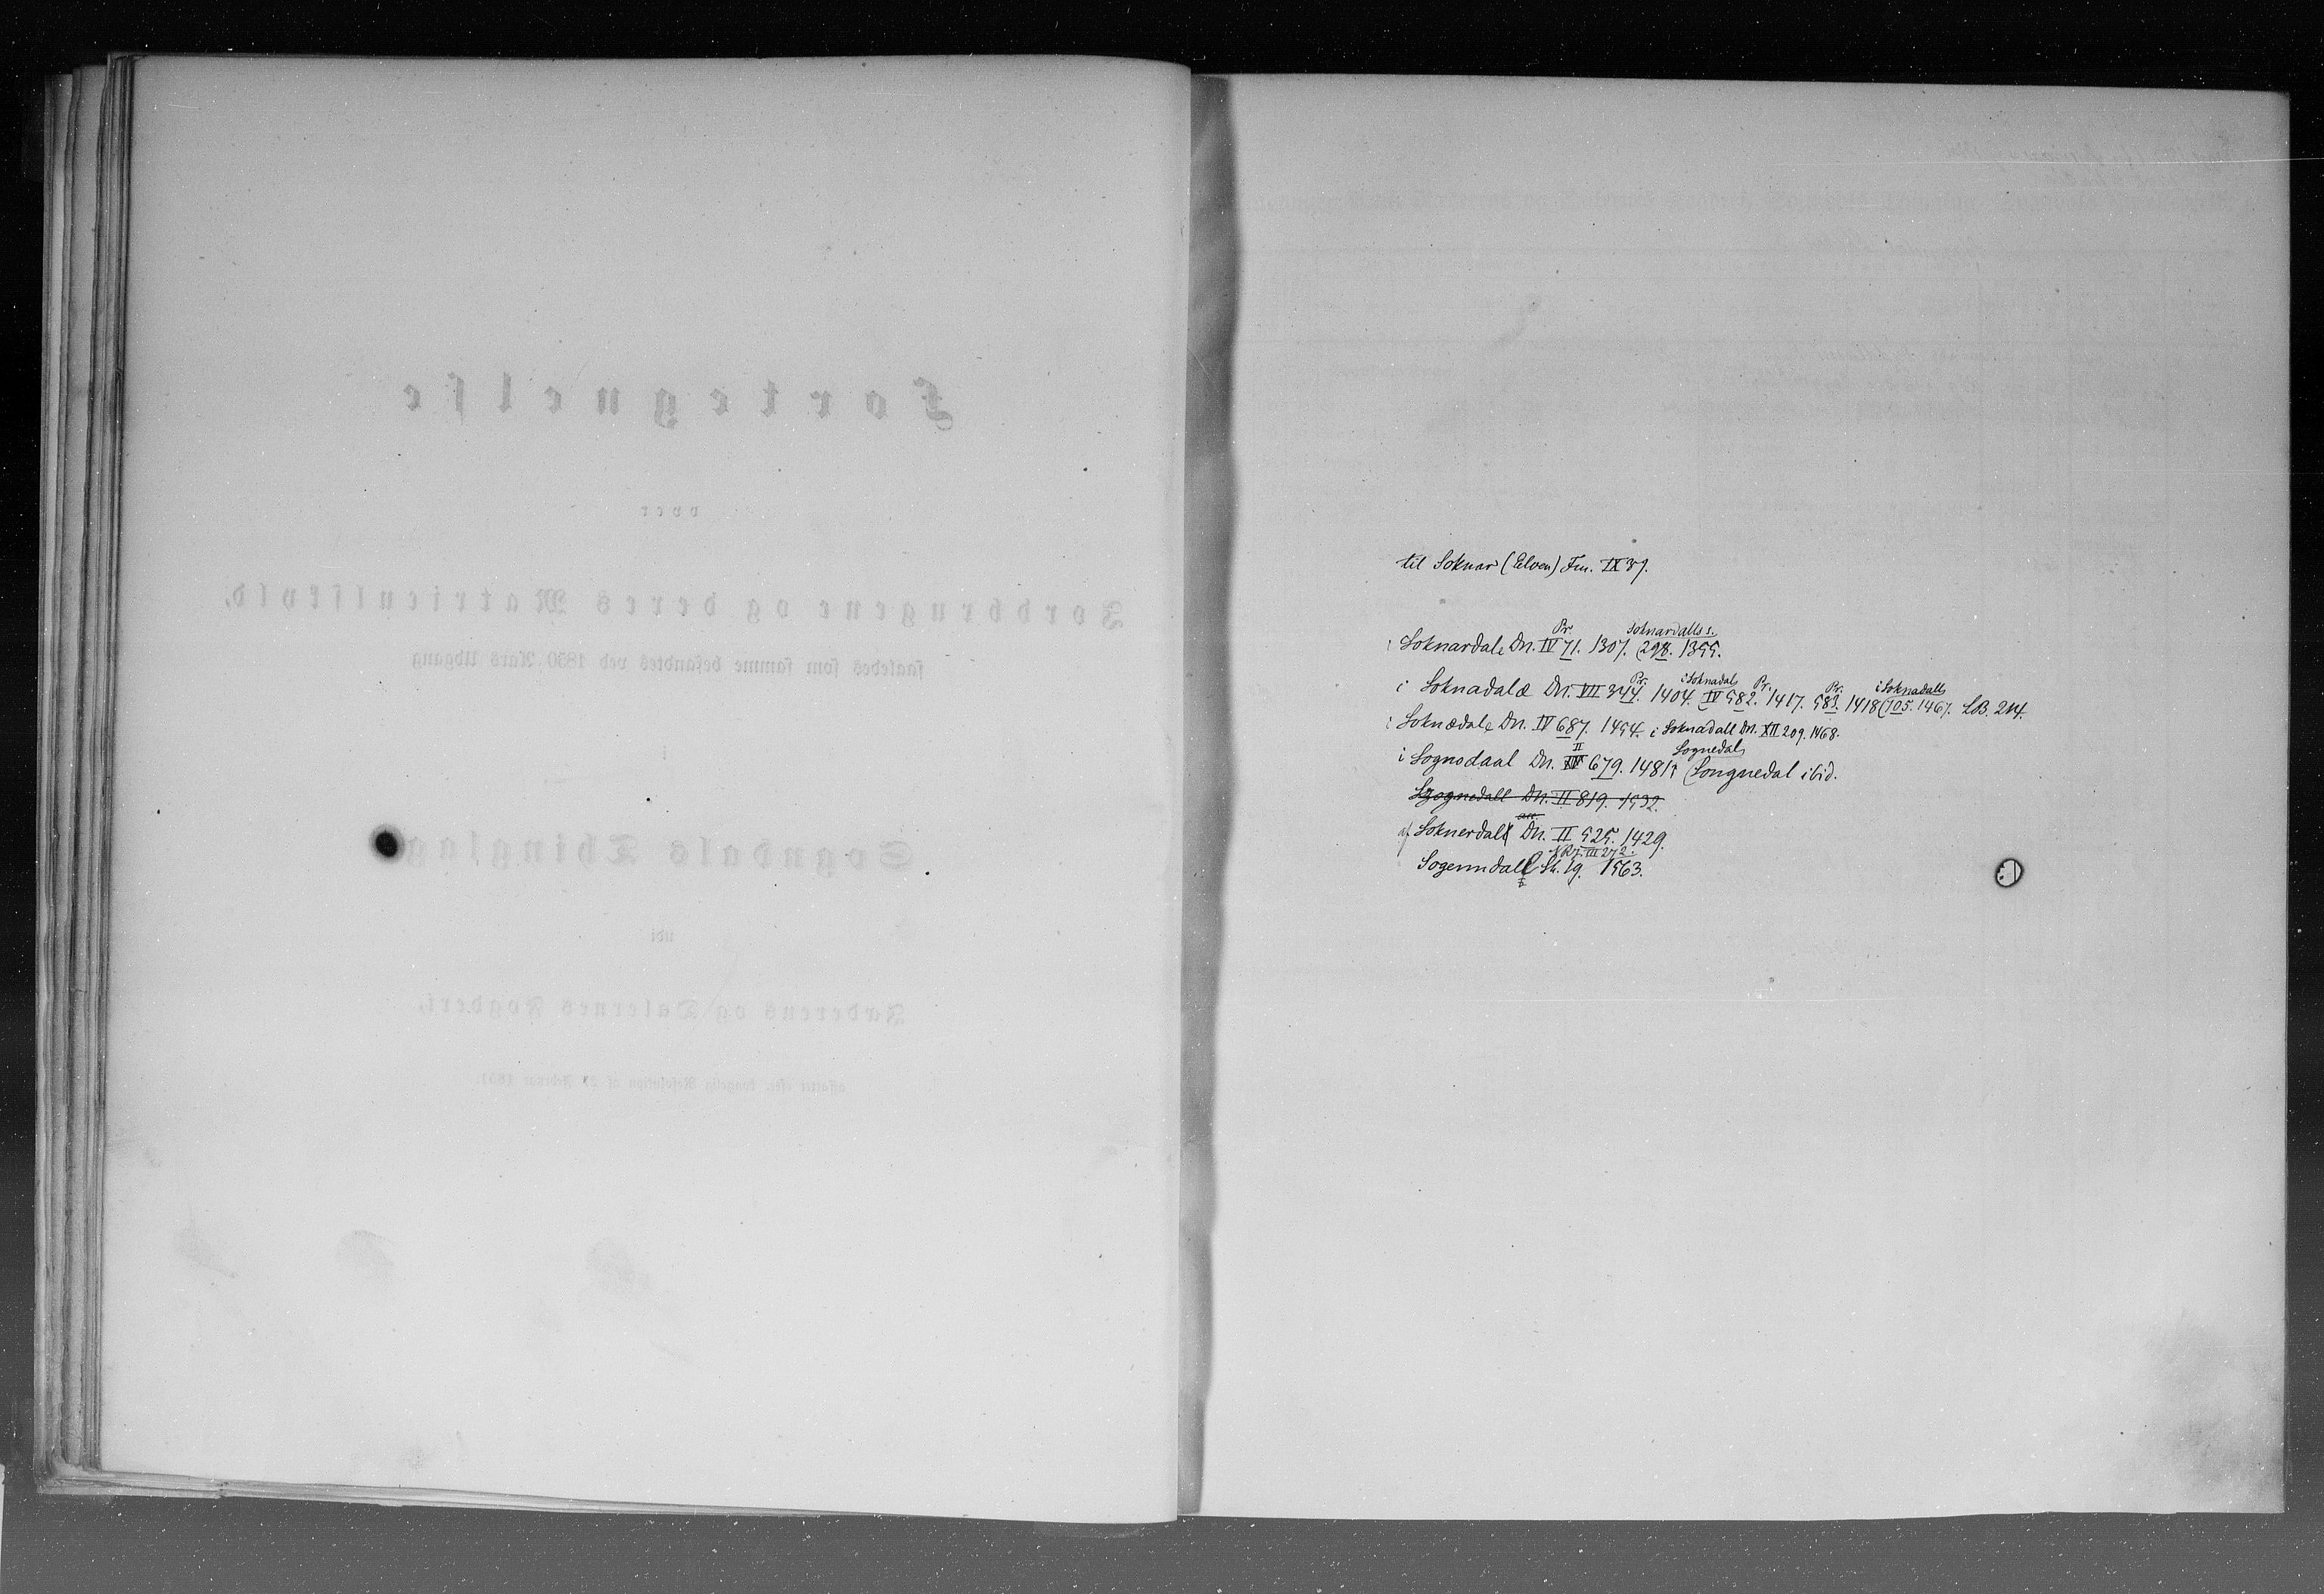 Fortegnelse
over
Jordbrugene og deres Matrienlskyld,
saaledes som samme befandtes ved 1850 Aars Udgang
i
Sogndals Thinglag
udi
Jæderens og Dalernes Fogderi,
til Soknar (Elven) Fm. IX 37.
Pr. Soknardalls s.
i Soknardale Dn. IV 71. 1307. (298. 1355.
Pr. i Soknadal Pr. Pr. i Soknadalls
i Soknadale Dn. VII 344. 1404. IV 582. 1417. 583. 1418 (705. 1467. LB. 214.
i Soknædale Dn. IV 687. 1454. i Soknadall Dn. XII 209. 1468.
II Sognedal
i Sognodaal Dn. 679. 1481 (Songnedal ibid.
Sgognedall Dn. II 819. 1532.
af Soknerdal Dn. II 525. 1429.
NRJ. III 272.
Sogenndall St. 19. 1563.